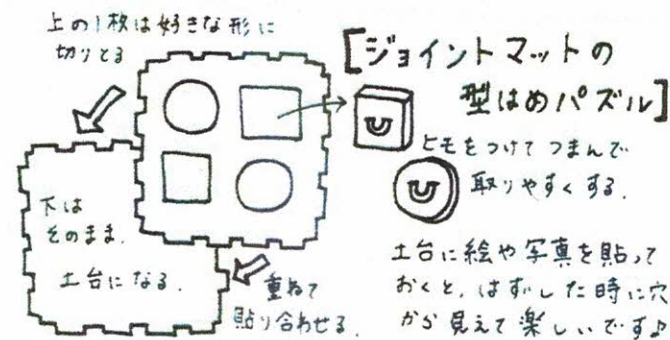 上の1枚は好きな形に
切りとる
[ジョイントマットの
型はめパズル]
ヒモをつけて つまんで
取りやすくする.
下は
そのまま.
土台になる.
重ねて
貼り合わせる.
土台に絵や写真を貼って
おくと、はずした時に穴
から 見えて楽しいです♪